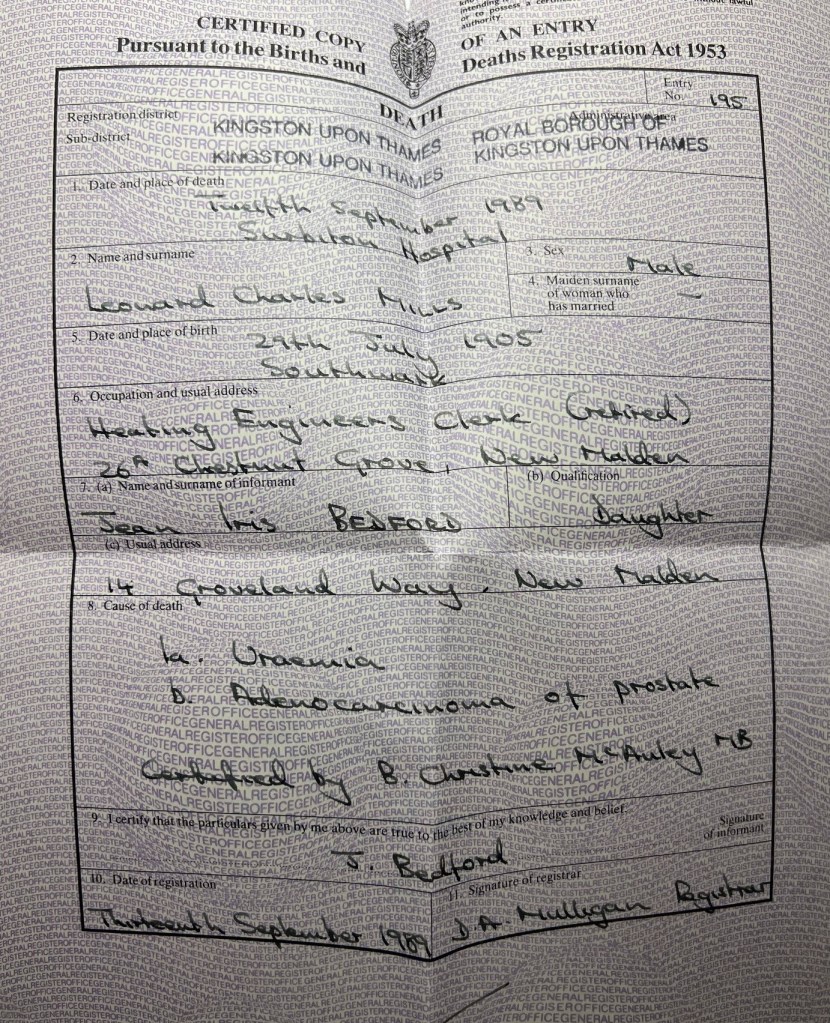 intending
or to possess a
authority.
CERTIFIED COPY OF AN ENTRY
Pursuant to the Births and Deaths Registration Act 1953
DEATH
Entry No. 195
Registration district KINGSTON UPON THAMES
Administrative area
Sub-district KINGSTON UPON THAMES
ROYAL BOROUGH OF
KINGSTON UPON THAMES
1. Date and place of death
Twelfth September 1989
Surbiton Hospital
2. Name and surname
Leonard Charles MILLS
3. Sex
Male
4. Maiden surname
of woman who
has married
—
5. Date and place of birth
29th July 1905
Southwark
6. Occupation and usual address
Heating Engineers Clerk (retired)
26A Chestnut Grove, New Malden
7. (a) Name and surname of informant
Jean Iris BEDFORD
(b) Qualification
Daughter
(c) Usual address
14 Groveland Way, New Malden
8. Cause of death
1a. Uraemia
b. Adenocarcinoma of prostate
Certified by B. Christine McAuley MB
9. I certify that the particulars given by me above are true to the best of my knowledge and belief.
J. Bedford
Signature
of informant
10. Date of registration
Thirteenth September 1989
11. Signature of registrar
D.A. Mulligan Registrar